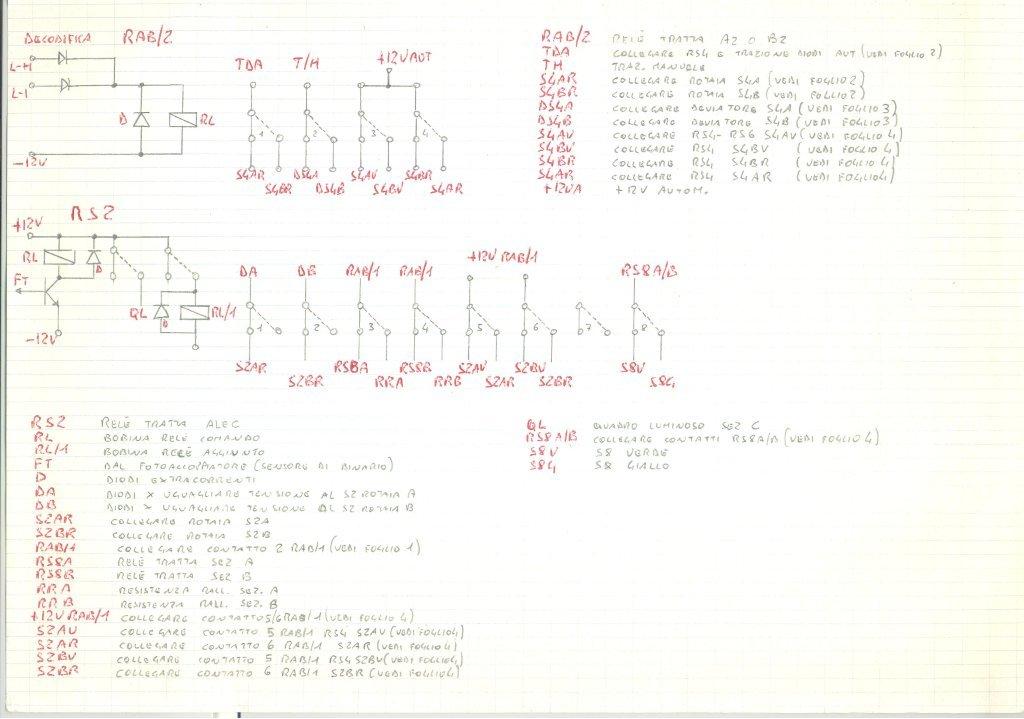 DECODIFICA RAB/2
L-H
L-I
D
RL
-12V
TDA T/M +12VAUT
1 2 3 4
S4AR DS4A S4AV S4BR
S4BR DS4B S4BV S4AR
RAB/2 RELÈ TRATTA A2 O B2
TDA COLLEGARE RS4 E TRAZIONE DIODI AUT (VEDI FOGLIO 2)
TM TRAZ. MANUALE
S4AR COLLEGARE ROTAIA S4A (VEDI FOGLIO 2)
S4BR COLLEGARE ROTAIA S4B (VEDI FOGLIO 2)
DS4A COLLEGARE DEVIATORE S4A (VEDI FOGLIO 3)
DS4B COLLEGARE DEVIATORE S4B (VEDI FOGLIO 3)
S4AV COLLEGARE RS4- RS6 S4AV (VEDI FOGLIO 4)
S4BV COLLEGARE RS4 S4BV (VEDI FOGLIO 4)
S4BR COLLEGARE RS4 S4BR (VEDI FOGLIO 4)
S4AR COLLEGARE RS4 S4AR (VEDI FOGLIO 4)
+12VA +12V AUTOM.
RS2
+12V
RL
D
FT
QL
D
RL/1
-12V
DA DB RAB/1 RAB/1 +12V RAB/1 RS8A/B
1 2 3 4 5 6 7 8
S2AR RS8A RS8B S2AV S2BV S8V
S2BR RRA RRB S2AR S2BR S8G
RS2 RELÈ TRATTA A2EC
RL BOBINA RELÈ COMANDO
RL/1 BOBINA RELÈ AGGIUNTO
FT DAL FOTOACCOPPIATORE (SENSORE DI BINARIO)
D DIODI EXTRACORRENTI
DA DIODI X UGUAGLIARE TENSIONE AL S2 ROTAIA A
DB DIODI X UGUAGLIARE TENSIONE AL S2 ROTAIA B
S2AR COLLEGARE ROTAIA S2A
S2BR COLLEGARE ROTAIA S2B
RAB/1 COLLEGARE CONTATTO 2 RAB/1 (VEDI FOGLIO 1)
RS8A RELÈ TRATTA SEZ A
RS8B RELÈ TRATTA SEZ B
RRA RESISTENZA RALL. SEZ. A
RRB RESISTENZA RALL. SEZ. B
+12V RAB/1 COLLEGARE CONTATTO 5/6 RAB/1 (VEDI FOGLIO 4)
S2AV COLLEGARE CONTATTO 5 RAB/1 RS4 S2AV (VEDI FOGLIO 4)
S2AR COLLEGARE CONTATTO 6 RAB/1 S2AR (VEDI FOGLIO 4)
S2BV COLLEGARE CONTATTO 5 RAB/1 RS4 S2BV (VEDI FOGLIO 4)
S2BR COLLEGARE CONTATTO 6 RAB/1 S2BR (VEDI FOGLIO 4)
QL QUADRO LUMINOSO SEZ C
RS8A/B COLLEGARE CONTATTI RS8A/B (VEDI FOGLIO 4)
S8V S8 VERDE
S8G S8 GIALLO